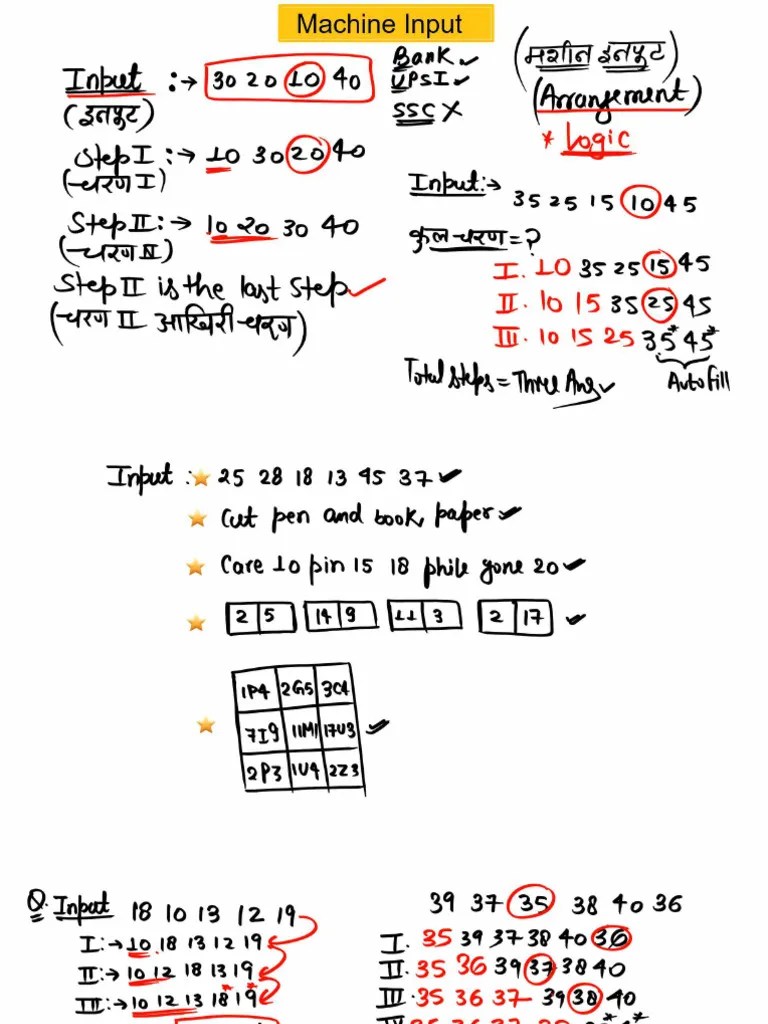 Machine Input
Input :→ 30 20 10 40
(इनपुट)
Step I :→ 10 30 20 40
(चरण I)
Step II :→ 10 20 30 40
(चरण II)
Step II is the last Step
(चरण II आखिरी चरण)
Bank ✓
UPSI ✓
SSC X
(मशीन इनपुट)
(Arrangement)
* Logic
Input :→ 35 25 15 10 45
कुल चरण = ?
I. 10 35 25 15 45
II. 10 15 35 25 45
III. 10 15 25 35* 45*
Total steps = Three Ans ✓
Auto fill
Input : 25 28 18 13 45 37 ✓
Cut pen and book, paper ✓
Care 10 pin 15 18 phile gone 20 ✓
2 5 14 9 11 3 2 17 ✓
1P4 2G5 3C4
7I9 11M1 17U3 ✓
2P3 1U4 2Z3
Q. Input 18 10 13 12 19
I :→ 10 18 13 12 19
II :→ 10 12 18 13 19
III :→ 10 12 13 18* 19*
39 37 35 38 40 36
I. 35 39 37 38 40 36
II. 35 36 39 37 38 40
III. 35 36 37 39 38 40